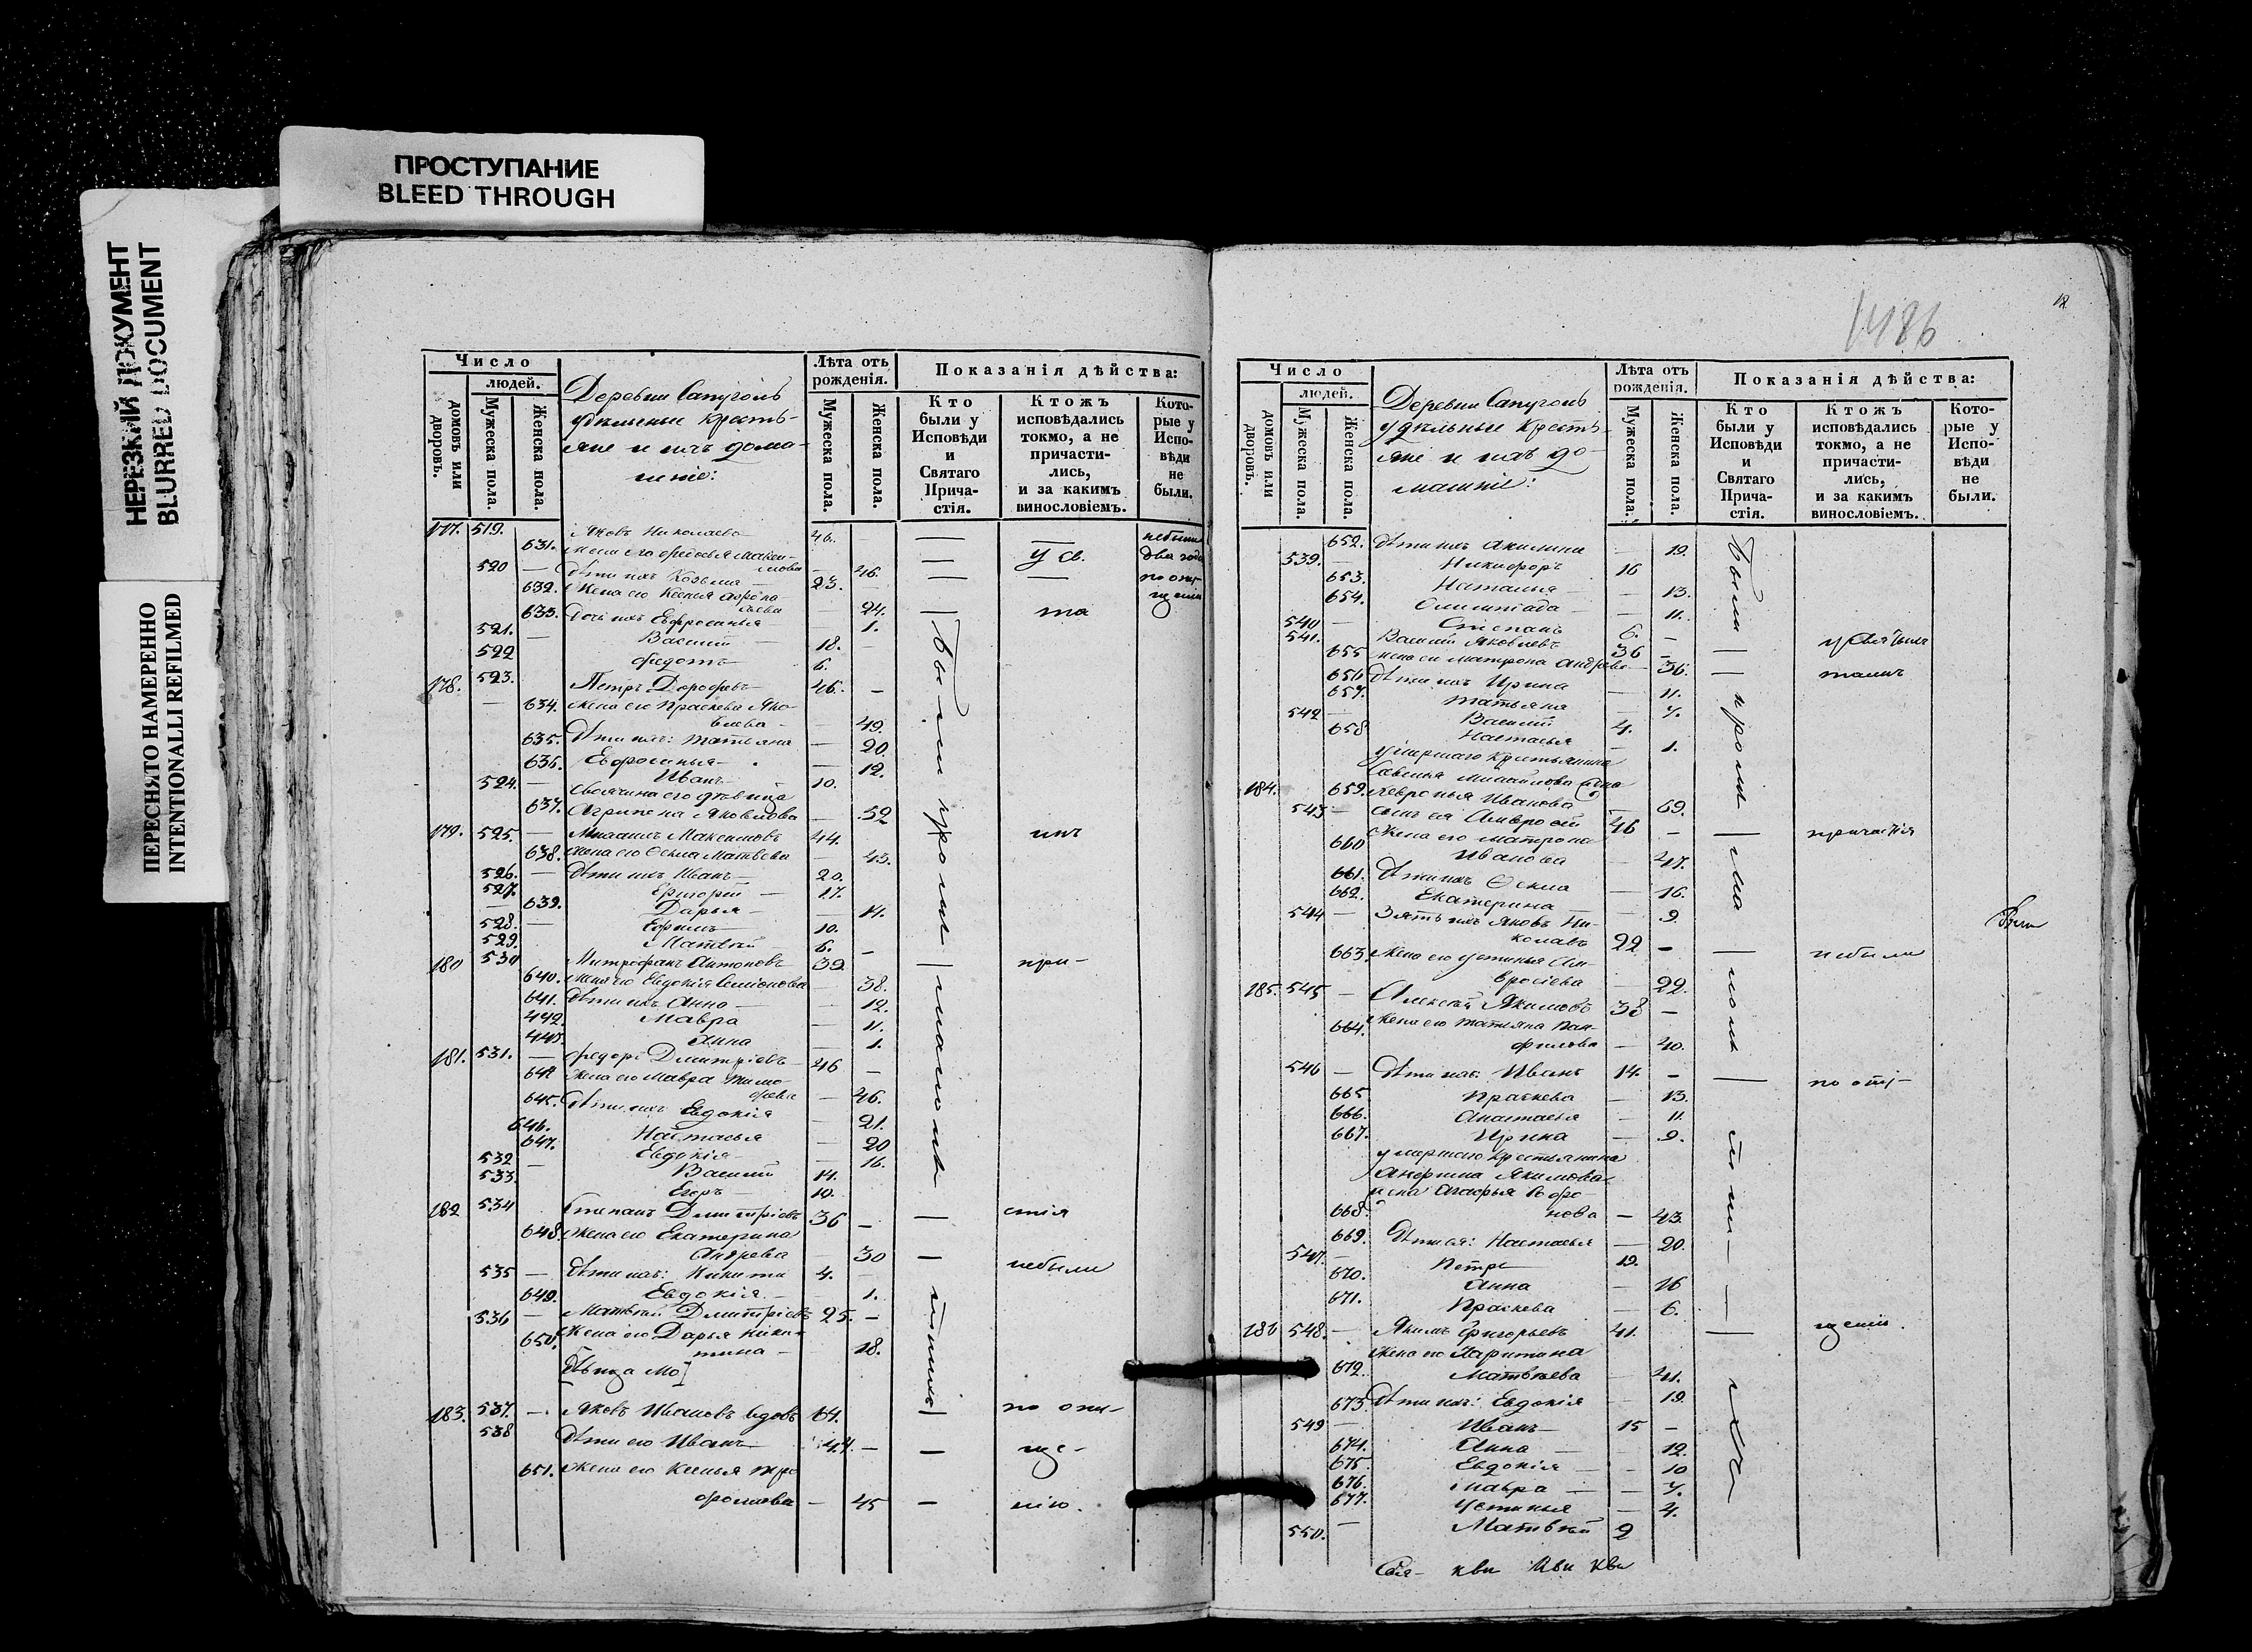 ПРОСТУПАНИЕ
BLEED THROUGH
НЕРЕЗКИЙ ДОКУМЕНТ
BLURRED DOCUMENT
ПЕРЕСНЯТО НАМЕРЕННО
INTENTIONALLI REFILMED
Число
людей.
домовъ или дворовъ.
Мужеска пола.
Женска пола.
Деревни Сапуголь
удѣльные кресть-
яне и ихъ дома-
шніе:
Лѣта отъ рожденія.
Мужеска пола.
Женска пола.
Показанія дѣйства:
Кто были у Исповѣди и Святаго Прича-стія.
Ктожъ исповѣдались токмо, а не причасти-лись, и за какимъ винословіемъ.
Кото-рые у Испо-вѣди не были.
177. 519. Яковъ Николаевъ 46.
631. Жена его Федосья Макси-
мова 46.
520 Дѣти ихъ Козьма 23.
632. Жена его Ксенія
24.
633. Дочь ихъ Евфросинья 1.
521. Василій 18.
522 Федотъ 6.
178. 523. Петръ Дорофеевъ 46.
634. Жена его Праскева Яко-
влева 49.
635. Дѣти ихъ: Татьяна 20
636. Евфросинья 12.
524. Иванъ 10.
Своячина его дѣвица
637. Агрипена Яковлева 52
179. 525. Михаилъ Максимовъ 44.
638. Жена его Ѳекла Матвѣева 43.
526. Дѣти ихъ Иванъ 20.
527. Григорій 17.
639. Дарья 14.
528. Ефимъ 10.
529. Матвей 6.
180 530 Митрофанъ Антоновъ 39
640. Жена его Евдокія Семіонова 38.
641. Дѣти ихъ Анна 12.
442. Мавра 11.
443. Анна 1.
181. 531. Федоръ Дмитріевъ 46
644 Жена его Мавра Тимо-
фева 46.
645. Дѣти ихъ Евдокія 21.
646. Настасья 20
647. Евдокія 16.
532 Василій 14.
533. Егоръ 10.
182 534 Степанъ Дмитріевъ 36
648. Жена его Екатерина
Андрева 30
535 Дѣти ихъ: Никита 4.
649. Евдокія 1.
536 Матвей Дмитріевъ 25.
650. Жена его Дарья Ники-
тина 18.
183. 537. Яковъ Ивановъ вдовъ 64.
538 Дѣти его Иванъ 44.
651. Жена его Ксенья Тро
фомаева 45
1486
Число
людей.
домовъ или дворовъ.
Мужеска пола.
Женска пола.
Деревни Сапуголь
удѣльные кресть-
яне и ихъ до-
машніе:
Лѣта отъ рожденія.
Мужеска пола.
Женска пола.
Показанія дѣйства:
Кто были у Исповѣди и Святаго Прича-стія.
Ктожъ исповѣдались токмо, а не причасти-лись, и за какимъ винословіемъ.
Кото-рые у Испо-вѣди не были.
652. Дѣти ихъ Акилина 19.
539. Никифоръ 16
653. Наталья 13.
654. Олимпіада 11.
540 Степанъ 6.
541. Василій Яковлевъ 36
655 Жена его Матрона Андрева 36.
656 Дѣти ихъ Ирина 11.
657. Татьяна 7.
542 Василій 4.
658 Настасья 1.
умершаго крестьянина
Савелья Михайлова жена
184. 659. Февронья Иванова 69.
543 сынъ ея Амвросій 46
660 Жена его Матрона
Иванова 47.
661. Дѣти ихъ Ѳекла 16.
662. Екатерина 9.
544 Зять ихъ Яковъ Ни-
колавъ 22
663. Жена его Устинья Ам-
вросіева 22.
185. 545 Алексей Якимовъ 38
664. Жена его Татьяна Пан-
филова 40.
546 Дѣти ихъ: Иванъ 14.
665 Праскева 13.
666. Анастасья 11.
667. Ирина 9.
умершаго крестьянина
Якимова
жена Агафья Софро-
668. нова 43.
669. Дѣти ея: Настасья 20.
547. Петръ 19.
670. Анна 16
671. Праскева 6.
186 548. Якимъ Григорьевъ 41.
Жена его Харитина
672. Матвѣева 41.
673 Дѣти ихъ: Евдокія 19.
549 Иванъ 15
674. Анна 12.
675. Евдокія 10
676. Мавра 7.
677. Устинья 4.
550. Матвѣй 2